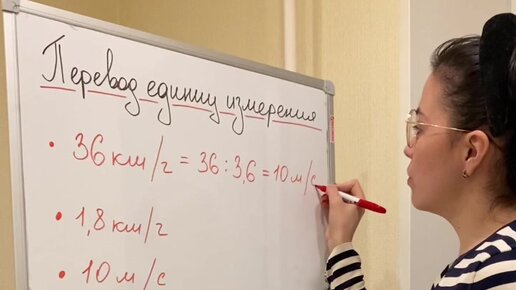 Перевод единиц измерения
• 36 км/г = 36 : 3,6 = 10 м/с
• 1,8 км/г
• 10 м/с